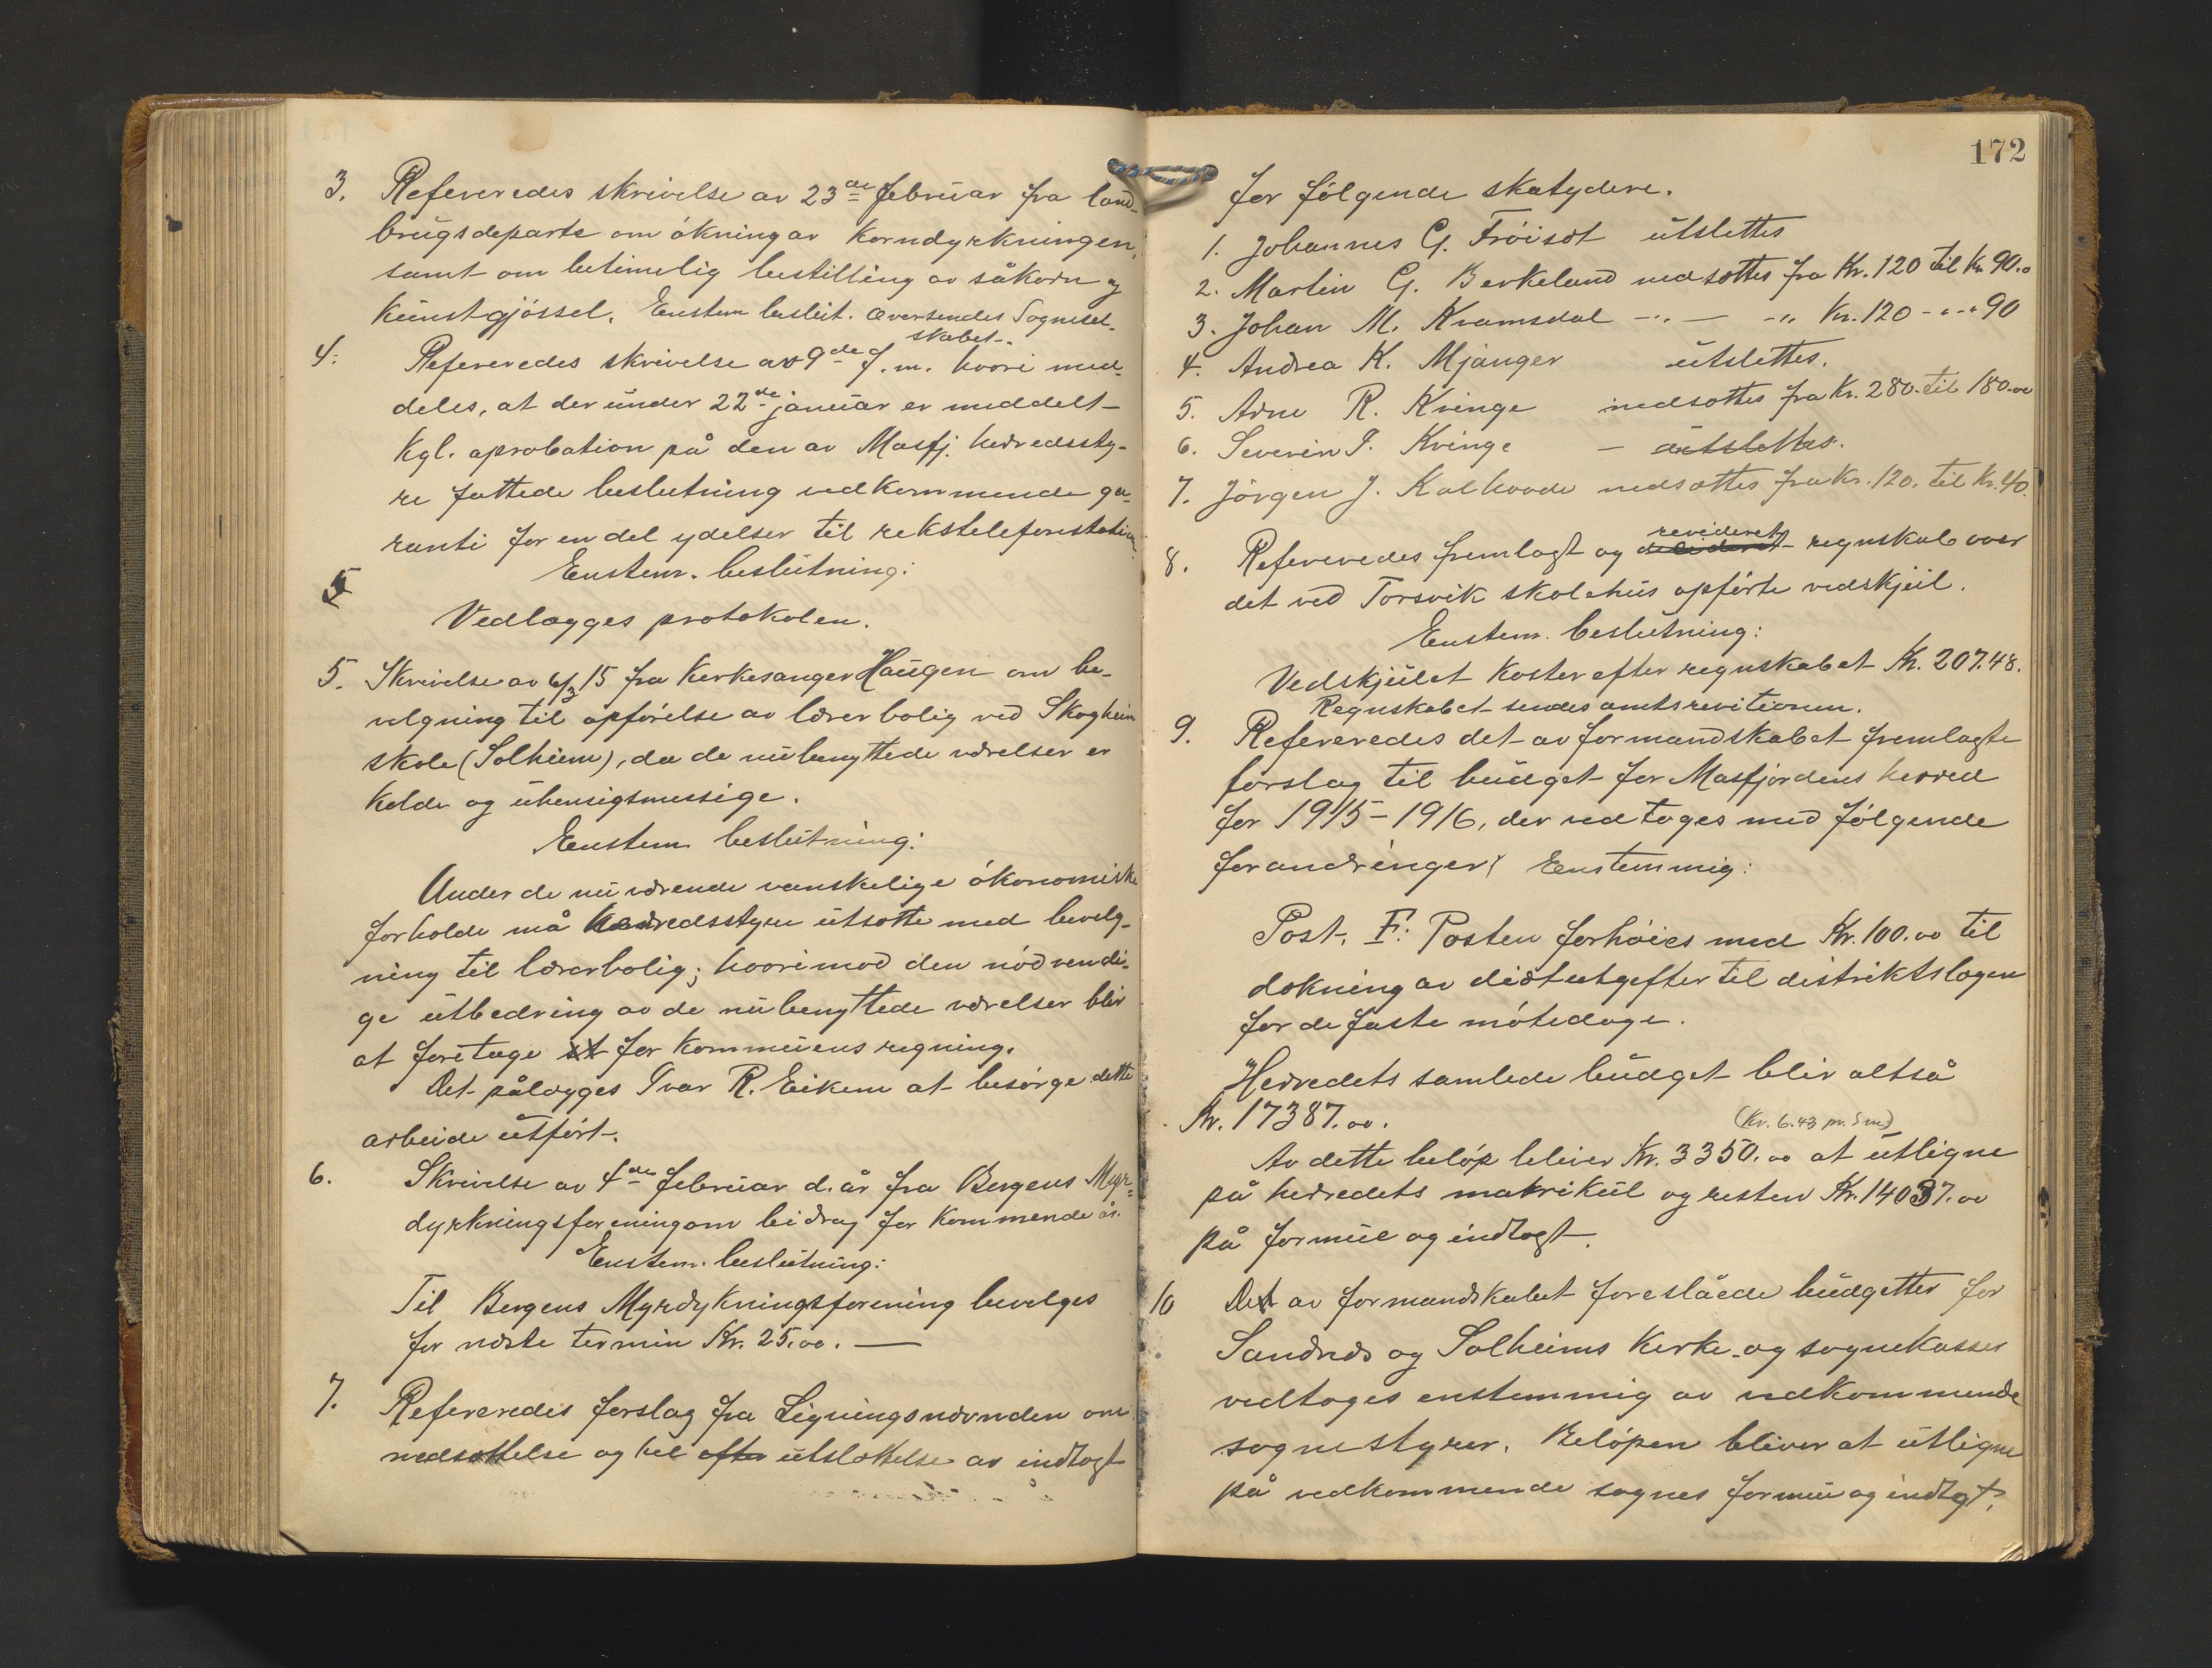 3. Refereredes skrivelse av 23de februar fra land-
brugsdeparte om økning av korndyrkningen,
samt om betimelig bestilling av såkorn og
kunstgjøssel. Enstem beslut. Oversendes Sognesel-
skabet.
4. Refereredes skrivelse av 9de f. m. hvori med-
deles, at der under 22de januar er meddelt
Kgl. aprobation på den av Masfj. herredssty-
re fattede beslutning vedkommende ga-
ranti for en del ydelser til rikstelefonstation
Enstem. beslutning:
5
Vedlægges protokolen.
5. Skrivelse av 6/3 15 fra Kirkesanger Haugen om be-
velgning til opførelse av lærerbolig ved Skogheim
skole (Solheim), da de nu benyttede værelser er
kolde og uhensigsmessige.
Enstem beslutning:
Under de nu værende vanskelige økonomiske
forholde må herredsstyre utsætte med bevelg-
ning til lærerbolig; hvorimod den nødvendi-
ge utbedring av de nu benyttede værelser blir
at foretage for kommunens regning.
Det pålægges Ivar R. Eikem at besørge dette
arbeide utført.
6. Skrivelse av 4de februar d. år fra Bergens Myr-
dyrkningsforening om bidrag for kommende år.
Enstem. beslutning:
Til Bergens Myrdykningsforening bevelges
for næste termin Kr. 25.00. —
7. Refereredes forslag fra Ligningsnævnden om
nedsættelse og hel efter utslættelse av indtægt
172
for følgende skatydere.
1. Johannes G. Frøiset utslettes
2. Martin G. Berkeland nedsættes fra Kr. 120 til Kr 90.00
3. Johan M. Kramsdal -"- — -" Kr. 120 -"-" 90
4. Andrea K. Mjanger utslettes.
5. Arne R. Kvinge nedsættes fra Kr. 280. til 180.00
6. Severin I. Kvinge — utslettes.
7. Jørgen J. Kalhovde nedsættes fra Kr. 120. til Kr. 40.
revideret
8. Refereredes fremlagt og regnskab over
det ved Torsvik skolehus opførte vedskjul.
Enstem. beslutning:
Vedskjulet koster efter regnskabet Kr. 207.48.
Regnskabet sendes amtsrevitionen.
9. Refereredes det av formandskabet fremlagte
forslag til budget for Masfjordens herred
for 1915-1916, der vedtoges med følgende
forandringer: Enstemmig:
Post. F: Posten forhøies med Kr. 100.00 til
dækning av diætutgifter til distriktslægen
for de faste møtedage.
Herredets samlede budget blir altså
Kr. 17387.00.
(Kr. 6.43 pr. Sm)
Av dette beløp bliver Kr. 3350.00 at utligne
på herredets matrikul og resten Kr. 14037.00
på formue og indtægt.
10 Det av formandskabet foreslåede budgetter for
Sandnæs og Solheims kirke- og sognekasser
vedtoges enstemmig av vedkommende
sognestyrer. Beløpen bliver at utligne
på vedkommende sognes formue og indtægt.